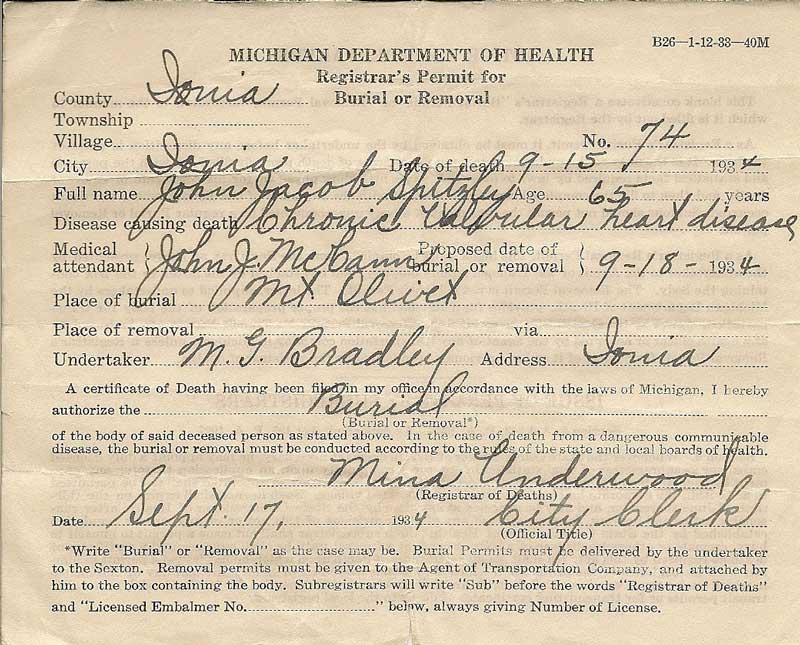 B26—1-12-33—40M
MICHIGAN DEPARTMENT OF HEALTH
Registrar's Permit for
County Ionia Burial or Removal
Township
Village No. 74
City Ionia Date of death 9-15 1934
Full name John Jacob Spitzley Age 65 years
Disease causing death Chronic Valvular heart disease
Medical attendant John J. McCann Proposed date of burial or removal 9-18- 1934
Place of burial Mt Olivet
Place of removal via
Undertaker M. G. Bradley Address Ionia
A certificate of Death having been filed in my office in accordance with the laws of Michigan, I hereby
authorize the Burial
(Burial or Removal*)
of the body of said deceased person as stated above. In the case of death from a dangerous communicable
disease, the burial or removal must be conducted according to the rules of the state and local boards of health.
Mina Underwood
(Registrar of Deaths)
Date Sept. 17, 1934 City Clerk
(Official Title)
*Write "Burial" or "Removal" as the case may be. Burial Permits must be delivered by the undertaker
to the Sexton. Removal permits must be given to the Agent of Transportation Company, and attached by
him to the box containing the body. Subregistrars will write "Sub" before the words "Registrar of Deaths"
and "Licensed Embalmer No. " below, always giving Number of License.